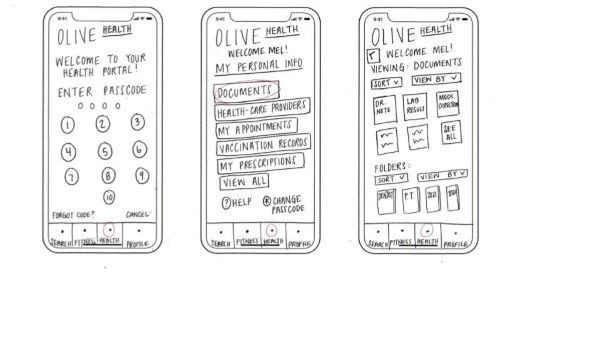 9:41
OLIVE HEALTH
WELCOME TO YOUR
HEALTH PORTAL!
ENTER PASSCODE
1 2 3
4 5 6
7 8 9
10
FORGOT CODE? CANCEL
SEARCH FITNESS HEALTH PROFILE
9:41
OLIVE HEALTH
WELCOME MEL!
MY PERSONAL INFO
DOCUMENTS
HEALTH-CARE PROVIDERS
MY APPOINTMENTS
VACCINATION RECORDS
MY PRESCRIPTIONS
VIEW ALL
? HELP CHANGE
PASSCODE
SEARCH FITNESS HEALTH PROFILE
9:41
OLIVE HEALTH
WELCOME MEL!
VIEWING: DOCUMENTS
SORT VIEW BY
DR. NOTE LAB RESULT
SEE ALL
FOLDERS:
SORT VIEW BY
P.T. 2021
SEARCH FITNESS HEALTH PROFILE